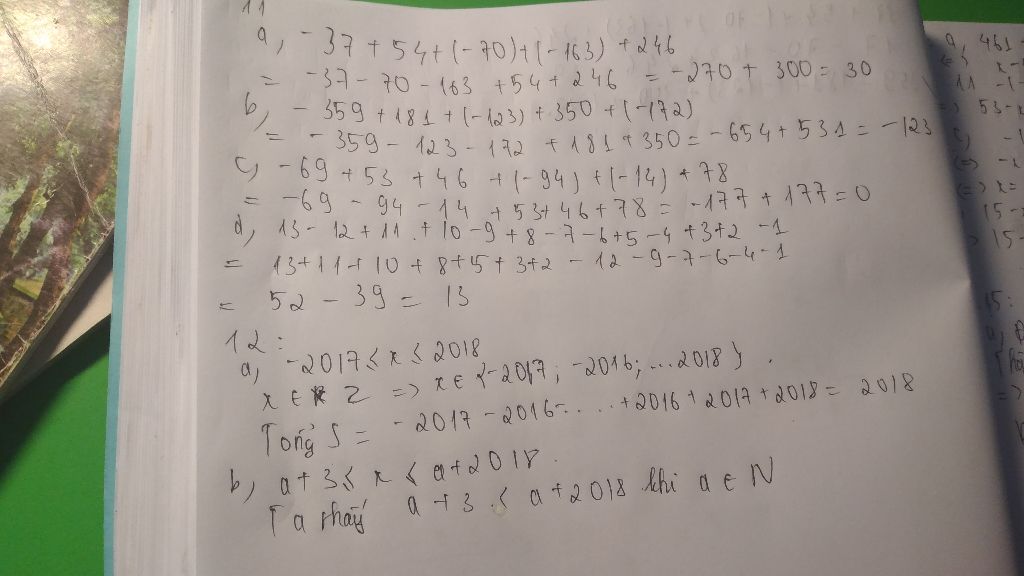 11
a, -37 + 54 + (-70) + (-163) + 246
= -37 - 70 - 163 + 54 + 246 = -270 + 300 = 30
b, - 359 + 181 + (-123) + 350 + (-172)
= - 359 - 123 - 172 + 181 + 350 = -654 + 531 = -123
c, -69 + 53 + 46 + (-94) + (-14) + 78
= -69 - 94 - 14 + 53 + 46 + 78 = -177 + 177 = 0
d, 13 - 12 + 11 + 10 - 9 + 8 - 7 - 6 + 5 - 4 + 3 + 2 - 1
= 13 + 11 + 10 + 8 + 5 + 3 + 2 - 12 - 9 - 7 - 6 - 4 - 1
= 52 - 39 = 13
12:
a, -2017 ≤ x ≤ 2018
x ∈ Z => x ∈ {-2017; -2016; ... 2018}
Tổng S = -2017 - 2016 - .... + 2016 + 2017 + 2018 = 2018
b, a + 3 ≤ x ≤ a + 2018
Ta thấy a + 3 < a + 2018 khi a ∈ N
a, 461
11
53 -
15 -
15 -
15: